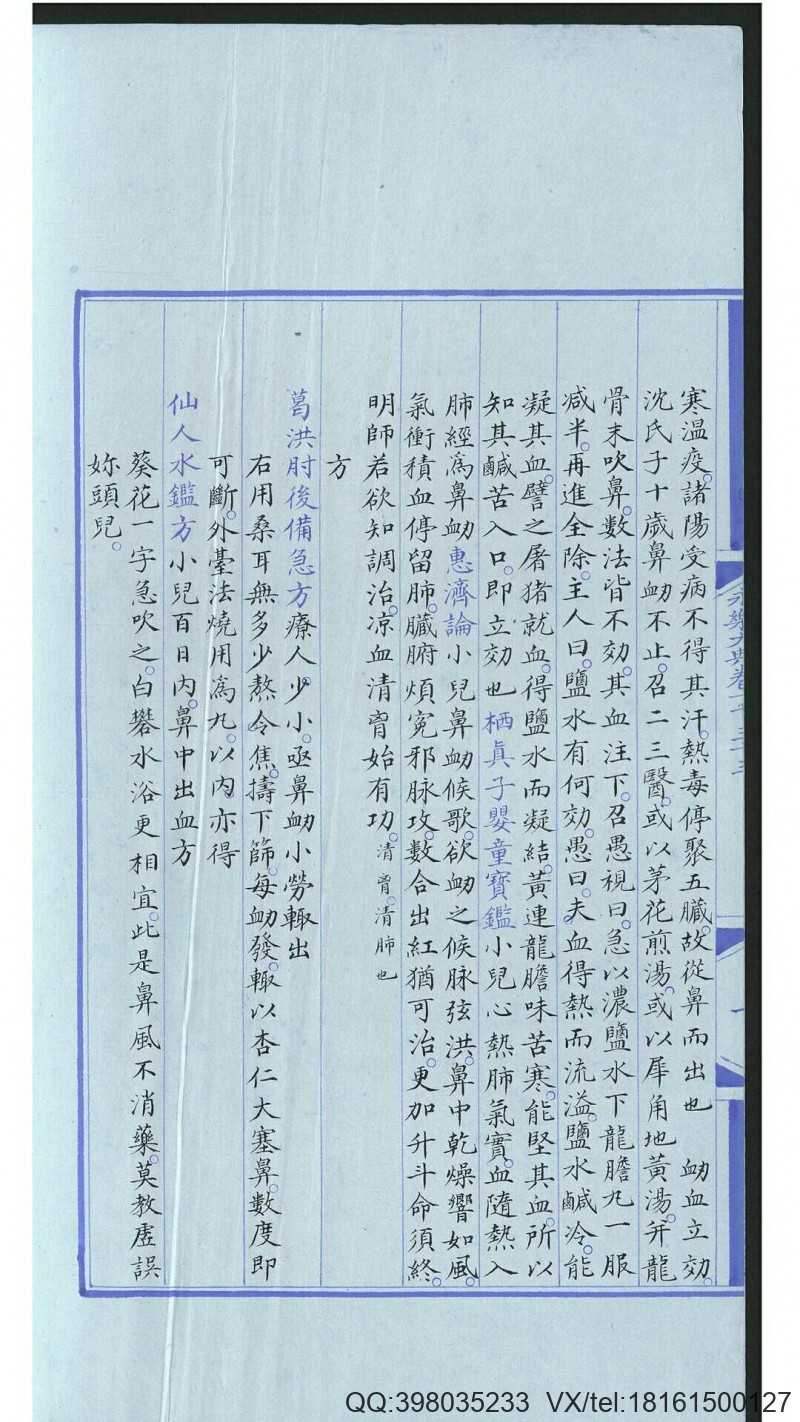 寒溫疫。諸陽受病不得其汗。熱毒停聚五臟。故從鼻而出也 衂血立効。
沈氏子十歲鼻衂不止。召二三醫。或以茅花煎湯。或以犀角地黃湯。幷龍
骨末吹鼻。數法皆不効。其血注下。召愚視曰。急以濃鹽水下龍膽丸一服
减半。再進全除。主人曰。鹽水有何効。愚曰。夫血得熱而流溢。鹽水鹹冷。能
凝其血。譬之屠猪就血。得鹽水而凝結。黃連龍膽味苦寒。能堅其血。所以
知其鹹苦入口。即立効也 栖眞子嬰童寶鑑小兒心熱肺氣實。血隨熱入
肺經爲鼻衂 惠濟論小兒鼻衂候歌。欲衂之候脉弦洪。鼻中乾燥響如風。
氣衝積血停留肺。臟腑煩寃邪脉攻。數合出紅猶可治。更加升斗命須終。
明師若欲知調治。凉血清胷始有功。清胷。清肺也
方
葛洪肘後備急方療人。少小。亟鼻衂小勞輙出
右用桑耳無多少熬令焦。擣下篩。每衂發。輙以杏仁大塞鼻。數度即
可斷。外臺法燒用爲丸。以內亦得
仙人水鑑方小兒百日內。鼻中出血方
葵花一字急吹之。白礬水浴更相宜。此是鼻風不消藥。莫教虛誤
妳頭兒。
永樂大典卷一
QQ:398035233 VX/tel:18161500127